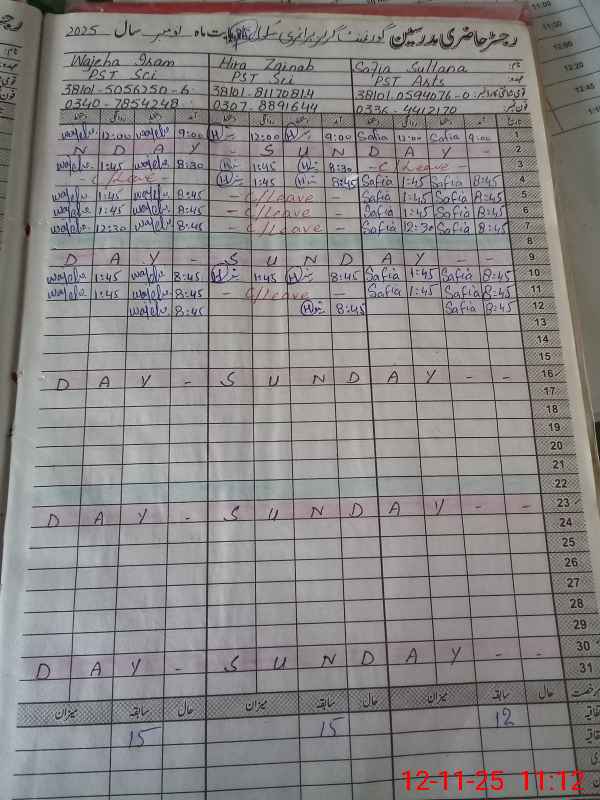 رجسٹر حاضری مدرسین گورنمنٹ گرلز پرائمری سکول بابت ماہ نومبر سال 2025
Wajeha Iram Hira Zainab Safia Sultana
PST Sci PST Sci PST Arts
38101-5056250-6 38101-81170814 38101-0594076-0
0340-7854248 0307-8891644 0336-4412170
12:00 9:00 12:00 9:00 Safia 12:00 Safia 9:00 1
N D A Y - S U N D A Y - 2
1:45 8:30 1:45 8:30 -C/Leave- 3
-C/Leave- 1:45 8:45 Safia 1:45 Safia 8:45 4
1:45 8:45 -C/Leave- Safia 1:45 Safia 8:45 5
1:45 8:45 -C/Leave- Safia 1:45 Safia 8:45 6
12:30 8:45 -C/Leave- Safia 12:30 Safia 8:45 7
8
D A Y - S U N D A Y - - 9
1:45 8:45 1:45 8:45 Safia 1:45 Safia 8:45 10
1:45 8:45 -C/Leave- Safia 1:45 Safia 8:45 11
8:45 8:45 Safia 8:45 12
13
14
15
D A Y - S U N D A Y - - 16
17
18
19
20
21
22
D A Y - S U N D A Y - - 23
24
25
26
27
28
29
D A Y - S U N D A Y - - 30
31
رخصت حال سابقہ میزان حال سابقہ میزان حال سابقہ میزان
15 15 12
12-11-25 11:12